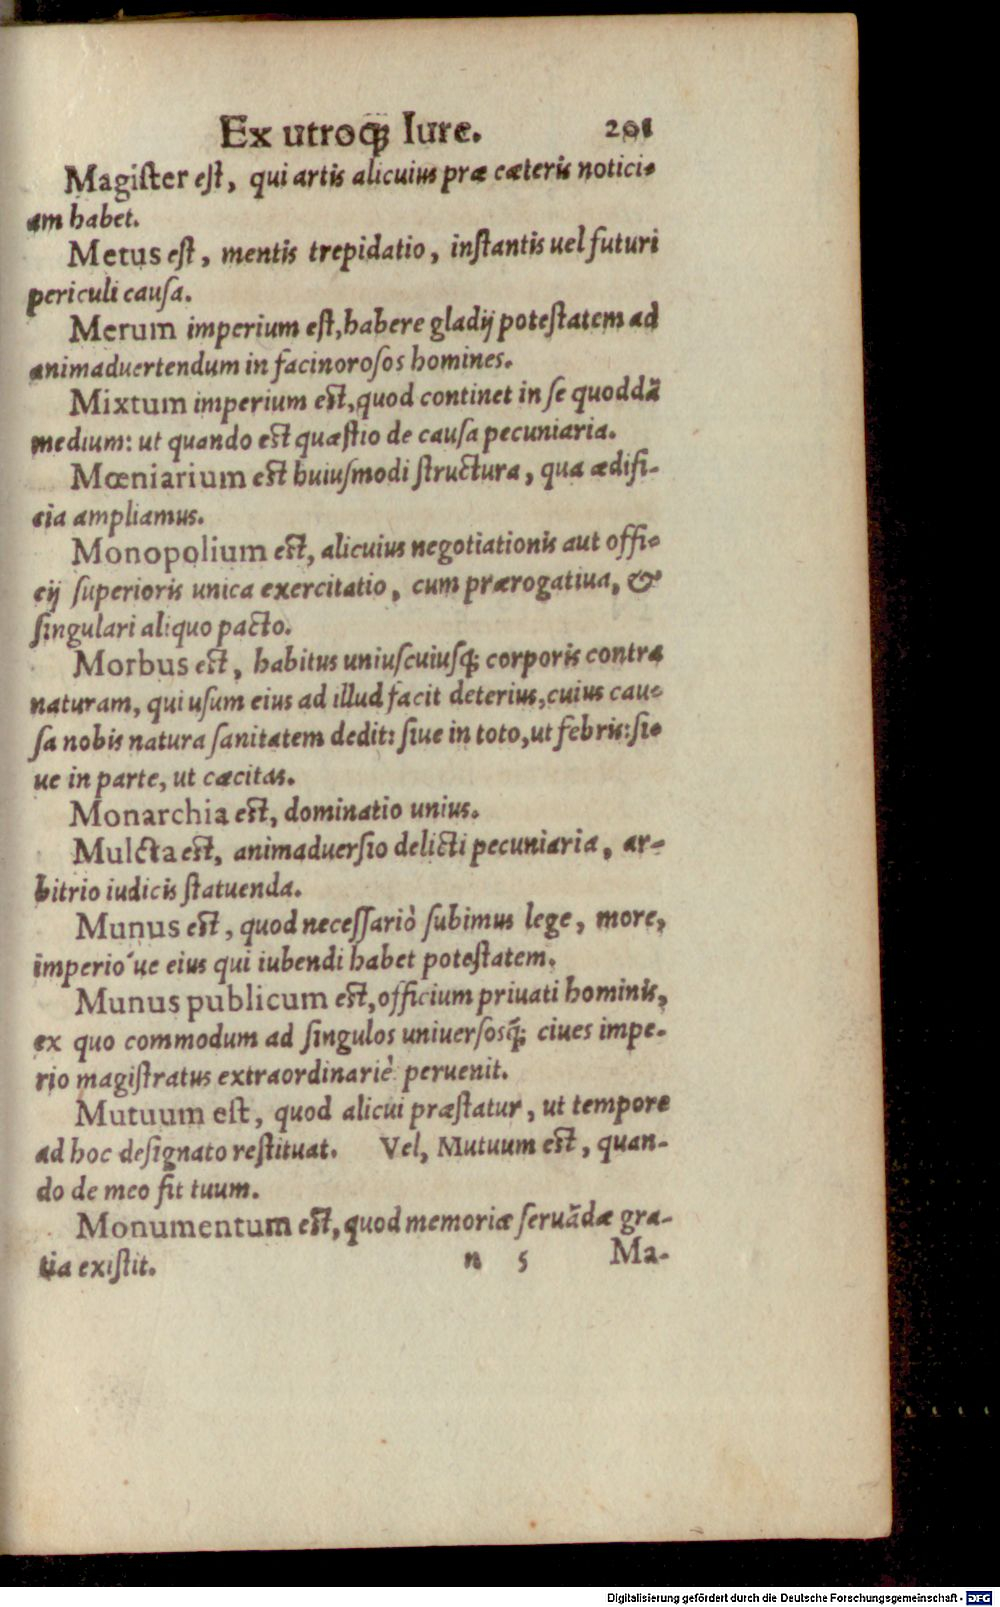 Ex utroq; Iure. 201
Magiſter eſt, qui artis alicuius præ cæteris notici-
am habet.
Metus eſt, mentis trepidatio, inſtantis uel futuri
periculi cauſa.
Merum imperium eſt, habere gladij poteſtatem ad
animaduertendum in facinoroſos homines.
Mixtum imperium eſt, quod continet in ſe quoddã
medium: ut quando eſt quæſtio de cauſa pecuniaria.
Mœniarium eſt huiuſmodi ſtructura, qua ædifi-
cia ampliamus.
Monopolium eſt, alicuius negotiationis aut offi-
cij ſuperioris unica exercitatio, cum prærogatiua, &
ſingulari aliquo pacto.
Morbus eſt, habitus uniuſcuiuſq; corporis contra
naturam, qui uſum eius ad illud facit deterius, cuius cau-
ſa nobis natura ſanitatem dedit: ſiue in toto, ut febris: ſi-
ue in parte, ut cæcitas.
Monarchia eſt, dominatio unius.
Mulcta eſt, animaduerſio delicti pecuniaria, ar-
bitrio iudicis ſtatuenda.
Munus eſt, quod neceſſariò ſubimus lege, more,
imperio´ue eius qui iubendi habet poteſtatem.
Munus publicum eſt, officium priuati hominis,
ex quo commodum ad ſingulos uniuerſosq́; ciues impe-
rio magiſtratus extraordinariè peruenit.
Mutuum eſt, quod alicui præſtatur, ut tempore
ad hoc deſignato reſtituat. Vel, Mutuum eſt, quan-
do de meo fit tuum.
Monumentum eſt, quod memoriæ ſeruãdæ gra-
tia exiſtit.
n 5 Ma-
Digitalisierung gefördert durch die Deutsche Forschungsgemeinschaft - DFG